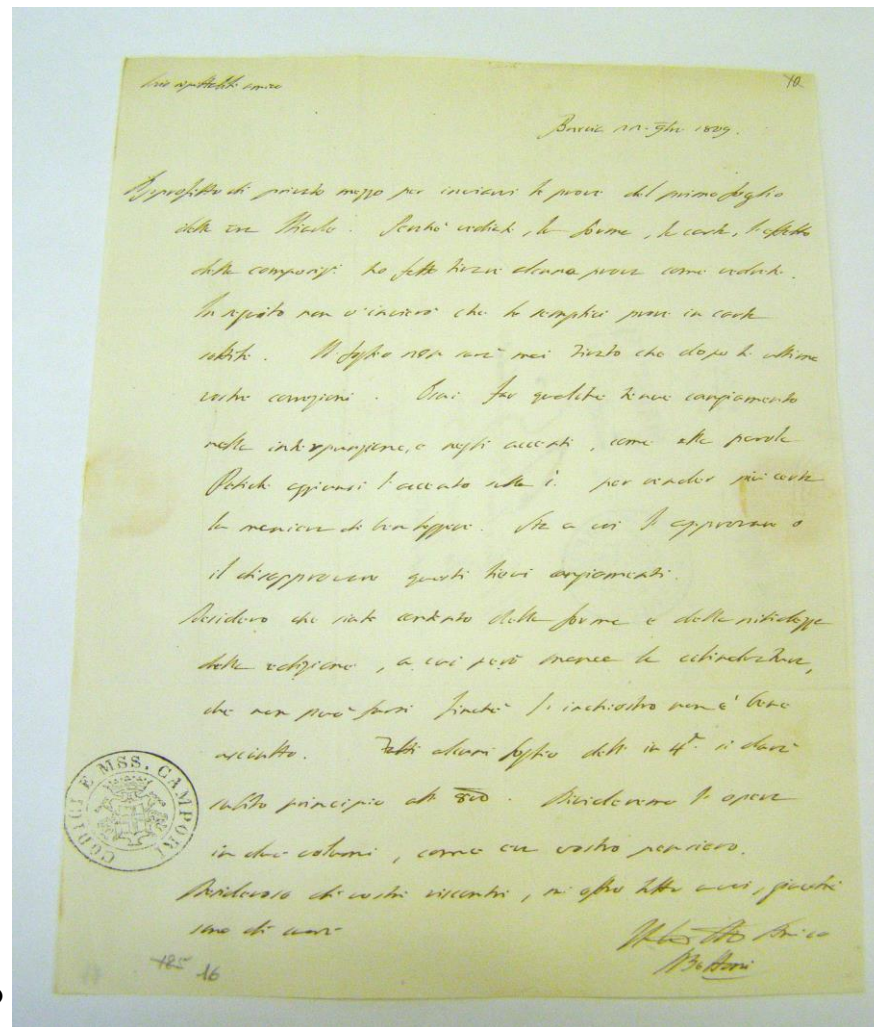 Mio rispettabile amico
10
Brescia 11. 9bre 1809.
Approfitto di privato mezzo per inviarvi le prove del primo foglio
della Iliade. Perchè vediate, la forma, la carta, l'effetto
della composiz. ho fatto tirare alcune prove come vedrete.
In seguito non v'invierò che le semplici prove in carta
sottile. Il foglio non sarà mai tirato che dopo le ultime
vostre correzioni. Osai far qualche tenue cangiamento
nella interpunzione, e negli accenti, come alla parola
Pelide aggiunsi l'accento sulla i. per render più certa
la maniera di ben leggere. Sta a voi l'approvare o
il disapprovare questi lievi cangiamenti.
Desidero che siate contento della forma e della nitidezza
della edizione, a cui però manca la cilindratura,
che non può farsi finchè l'inchiostro non è bene
asciutto. Fatti alcuni foglio dell' in 4°. si darà
subito principio all' 8vo. Divideremo l'opera
in due volumi, come era vostro pensiero.
Desideroso di vostri riscontri, mi offro tutto a voi, giacchè
sono di cuore
Amico
Bettoni
CODICI E MSS. CAMPORI
16